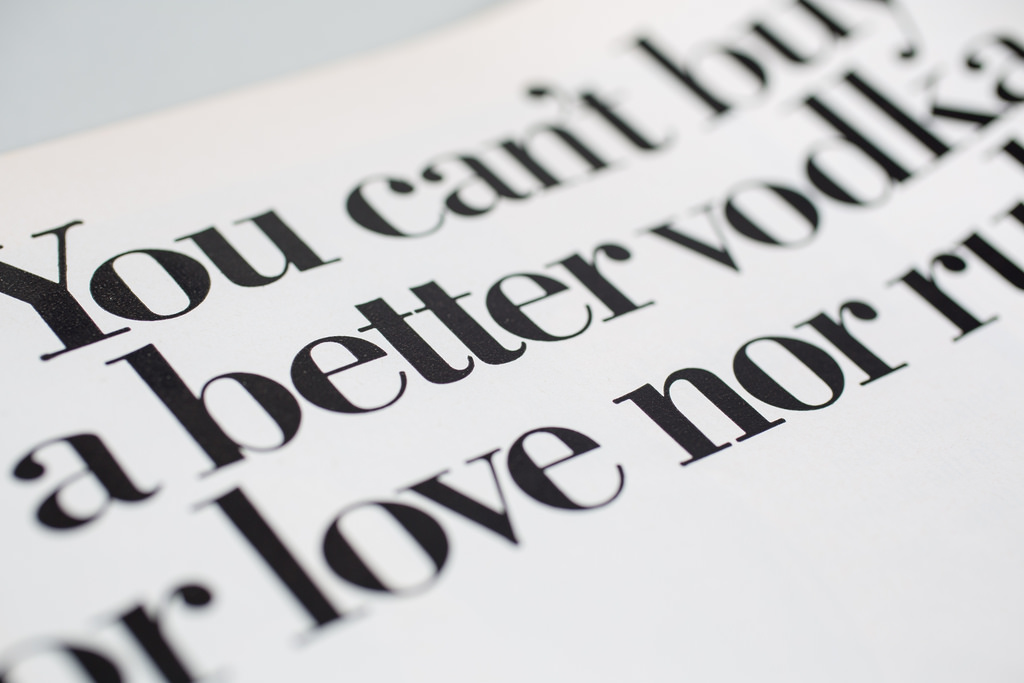 You can't buy
a better vodka
or love nor ru